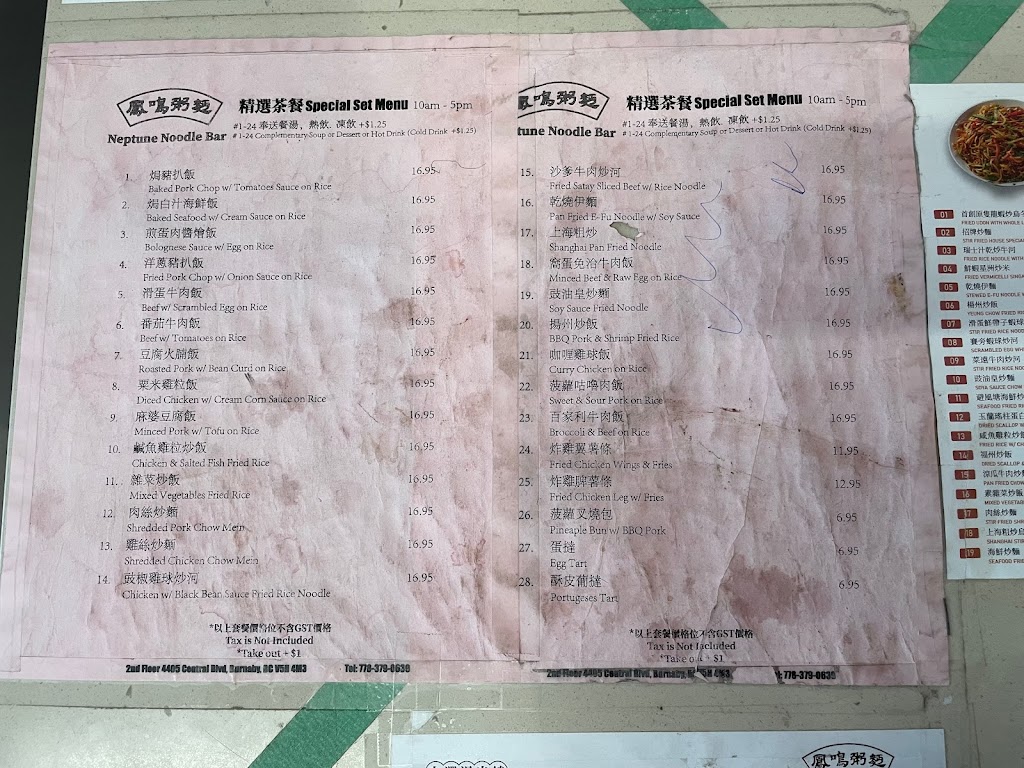 鳳鳴粥麵
Neptune Noodle Bar
精選茶餐 Special Set Menu 10am - 5pm
#1-24 奉送餐湯、熱飲. 凍飲 +$1.25
# 1-24 Complementary Soup or Dessert or Hot Drink (Cold Drink +$1.25)
1. 焗豬扒飯 16.95
Baked Pork Chop w/ Tomatoes Sauce on Rice
2. 焗白汁海鮮飯 16.95
Baked Seafood w/ Cream Sauce on Rice
3. 煎蛋肉醬燴飯 16.95
Bolognese Sauce w/ Egg on Rice
4. 洋蔥豬扒飯 16.95
Fried Pork Chop w/ Onion Sauce on Rice
5. 滑蛋牛肉飯 16.95
Beef w/ Scrambled Egg on Rice
6. 番茄牛肉飯 16.95
Beef w/ Tomatoes on Rice
7. 豆腐火腩飯 16.95
Roasted Pork w/ Bean Curd on Rice
8. 粟米雞粒飯 16.95
Diced Chicken w/ Cream Corn Sauce on Rice
9. 麻婆豆腐飯 16.95
Minced Pork w/ Tofu on Rice
10. 鹹魚雞粒炒飯 16.95
Chicken & Salted Fish Fried Rice
11. 雜菜炒飯 16.95
Mixed Vegetables Fried Rice
12. 肉絲炒麵 16.95
Shredded Pork Chow Mein
13. 雞絲炒麵 16.95
Shredded Chicken Chow Mein
14. 豉椒雞球炒河 16.95
Chicken w/ Black Bean Sauce Fried Rice Noodle
*以上套餐價格位不含GST價格
Tax is Not Included
*Take out + $1
2nd Floor 4405 Central Blvd, Burnaby, BC V5H 4M3 Tel: 778-379-0639
鳳鳴粥麵
tune Noodle Bar
精選茶餐 Special Set Menu 10am - 5pm
#1-24 奉送餐湯、熱飲. 凍飲 +$1.25
# 1-24 Complementary Soup or Dessert or Hot Drink (Cold Drink +$1.25)
15. 沙爹牛肉炒河 16.95
Fried Satay Sliced Beef w/ Rice Noodle
16. 乾燒伊麵 16.95
Pan Fried E-Fu Noodle w/ Soy Sauce
17. 上海粗炒 16.95
Shanghai Pan Fried Noodle
18. 窩蛋免治牛肉飯 16.95
Minced Beef & Raw Egg on Rice
19. 豉油皇炒麵 16.95
Soy Sauce Fried Noodle
20. 揚州炒飯 16.95
BBQ Pork & Shrimp Fried Rice
21. 咖喱雞球飯 16.95
Curry Chicken on Rice
22. 菠蘿咕嚕肉飯 16.95
Sweet & Sour Pork on Rice
23. 百家利牛肉飯 16.95
Broccoli & Beef on Rice
24. 炸雞翼薯條 11.95
Fried Chicken Wings & Fries
25. 炸雞脾薯條 12.95
Fried Chicken Leg w/ Fries
26. 菠蘿叉燒包 6.95
Pineaple Bun w/ BBQ Pork
27. 蛋撻 6.95
Egg Tart
28. 酥皮葡撻 6.95
Portugeses Tart
*以上套餐價格位不含GST價格
Tax is Not Included
*Take out + $1
2nd Floor 4405 Central Blvd, Burnaby, BC V5H 4M3 778-379-0639
01
02 招牌炒麵
STIR FRIED HOUSE SPECIA
03 瑞士汁乾炒牛河
FRIED RICE NOODLE WITH
04 鮮蝦星洲炒米
FRIED VERMICELLI SING
05 乾燒伊麵
STEWED E-FU NOODLE
06 楊州炒飯
YEUNG CHOW FRIED RI
07 滑蛋鮮帶子蝦球
STIR FRIED RICE NOOD
08 賽螃蝦球炒河
SCRAMBLED EGG WH
09 菜遠牛肉炒河
STIR FRIED RICE NOO
10 豉油皇炒麵
SOYA SAUCE CHOW
11 避風塘海鮮炒
SEAFOOD FRIED RI
12 玉蘭瑤柱蛋白
DRIED SCALLOP
13 咸魚雞粒炒飯
FRIED RICE W/ CH
14 福州炒飯
DRIED SCALLOP &
15 涼瓜牛肉炒
PAN FRIED CHOW
16 素雜菜炒飯
MIXED VEGETAB
17 肉絲炒麵
STIR FRIED SHR
18 上海粗炒
SHANGHAI STIR
19 海鮮炒麵
SEAFOOD FRIE
鳳鳴粥麵